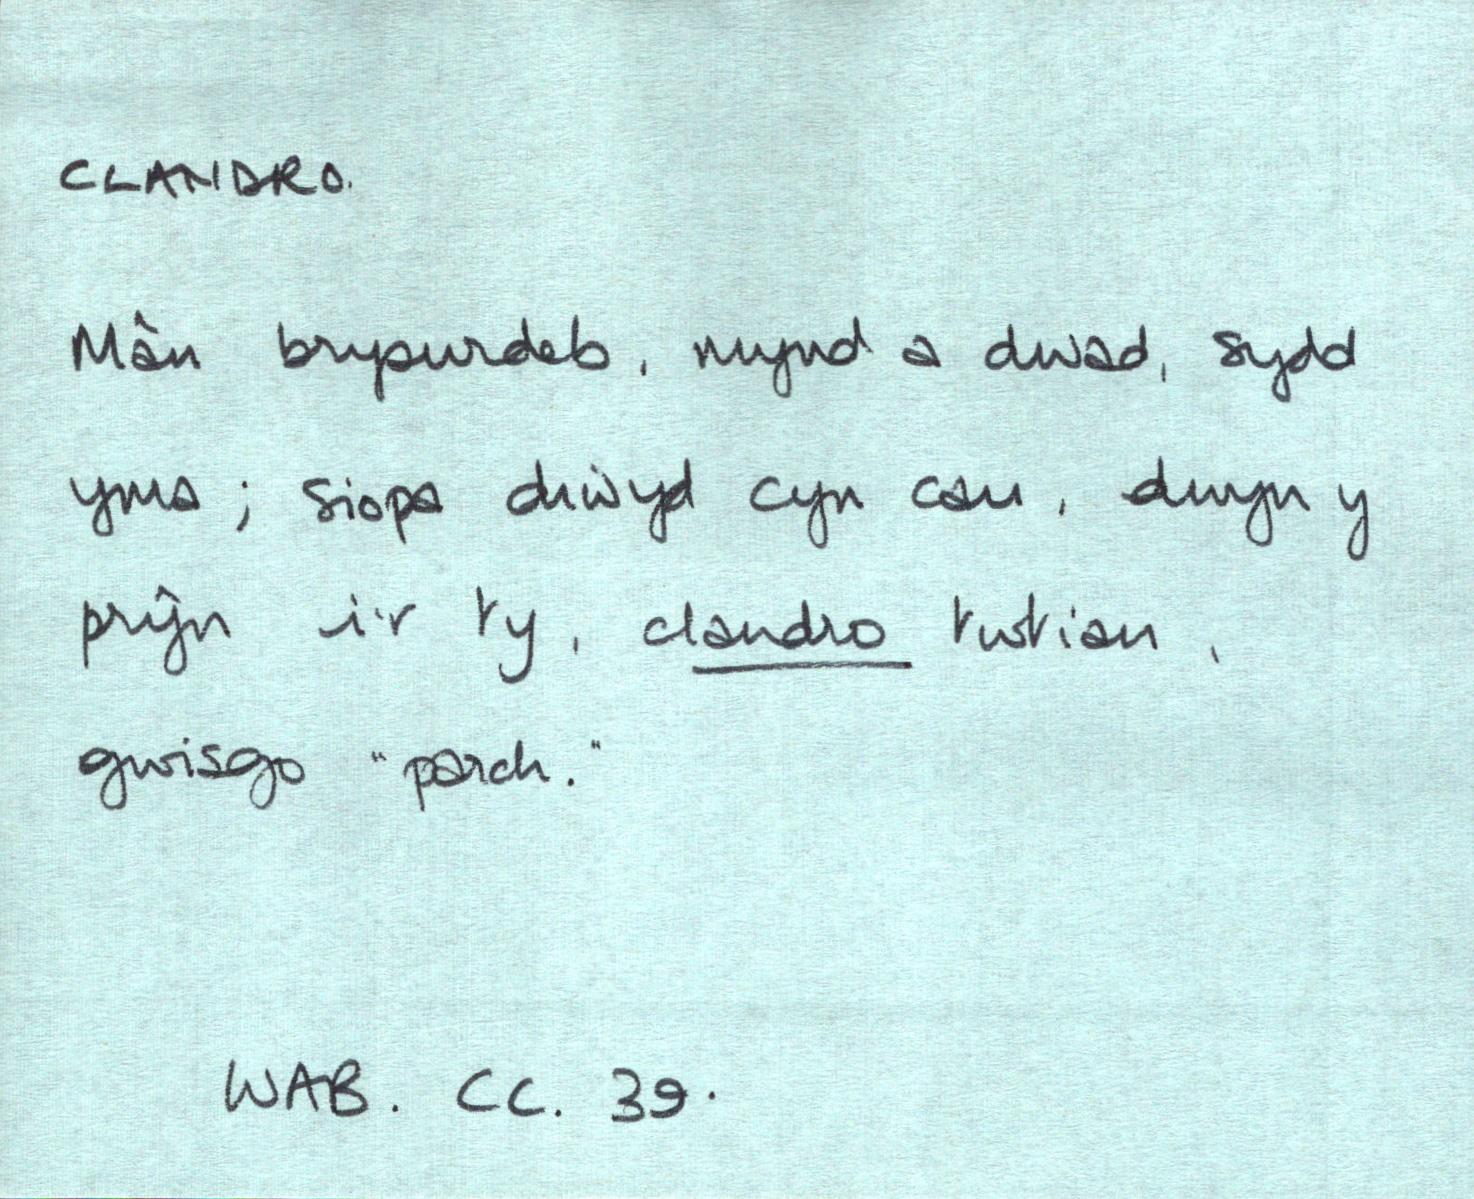 CLANDRO.
Mân brysurdeb, mynd a dwad, sydd
yma; siopa diwyd cyn cau, dwyn y
prŷn i'r ty, clandro twtian,
gwisgo "parch."
WAB. CC. 39.